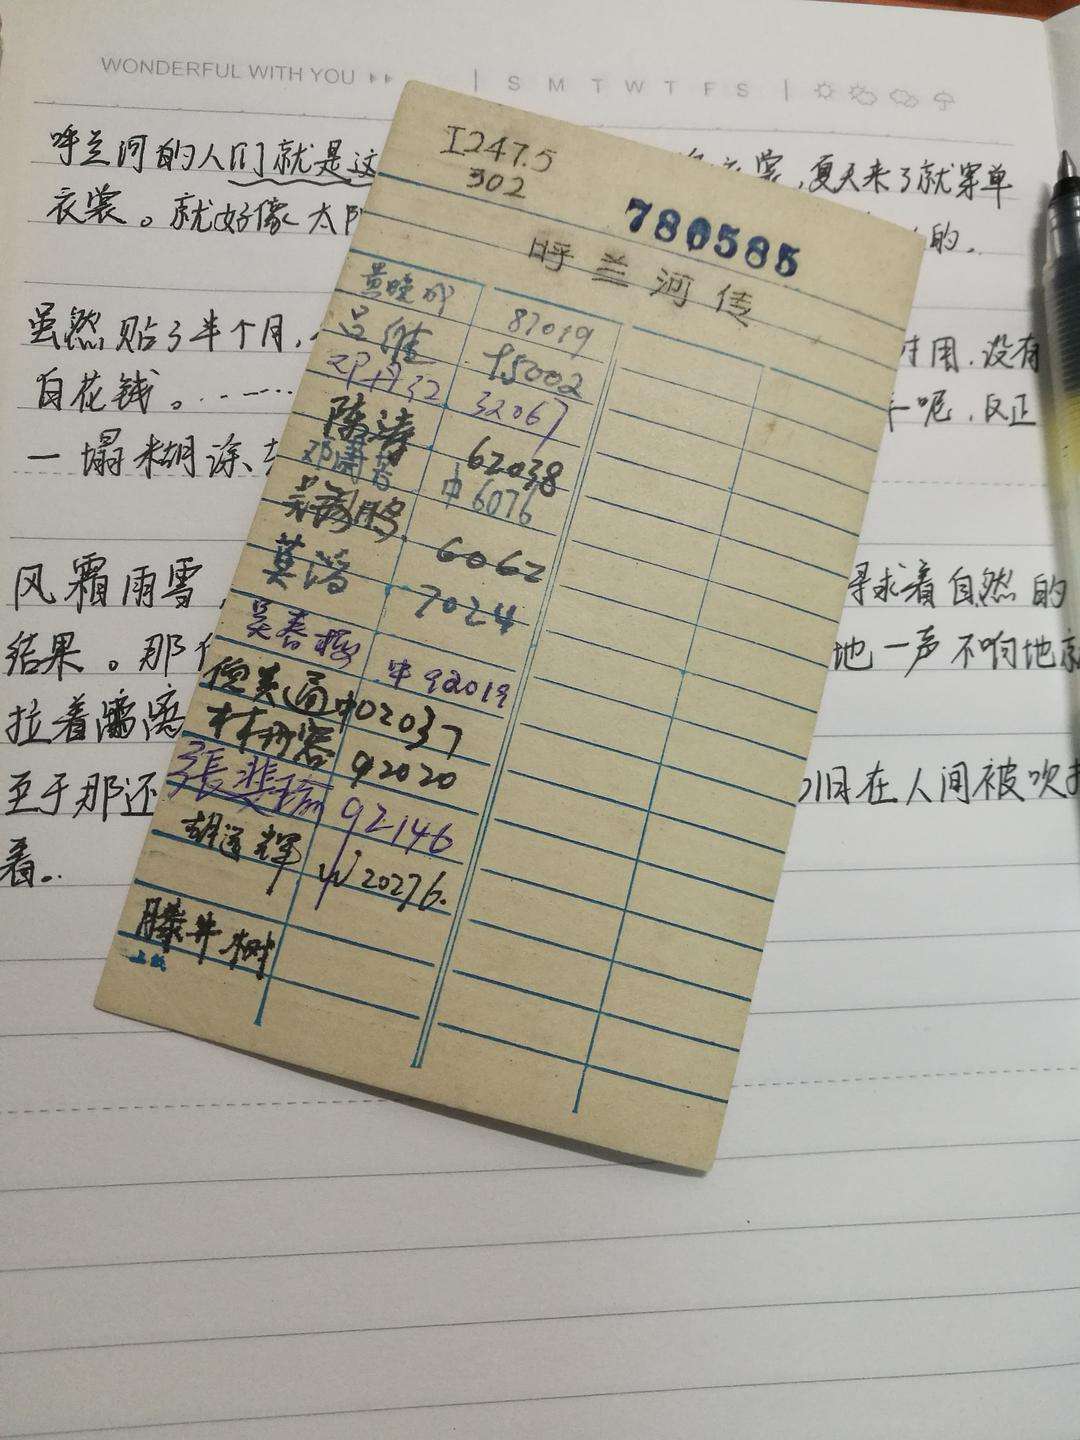 WONDERFUL WITH YOU
S M T W T F S
呼兰河的人们就是这
裳,夏天来了就穿单
衣裳。就好像太阳
的。
虽然贴了半个月,
时用,没有
白花钱。……
呢,反正
一塌糊涂、
风霜雨雪,
寻求着自然的
结果。那
地一声不响地就
拉着离
至于那还
仍旧在人间被吹打
着。
I247.5
302
780585
呼兰河传
黄晓成 87019
吕维 95002
邓丹 32 32067
陈涛 62038
邓萧
中6076
6062
莫滔 7024
吴春 中92019
中02037
林 92020
張斐 92146
胡 辉 W20276.
藤井树